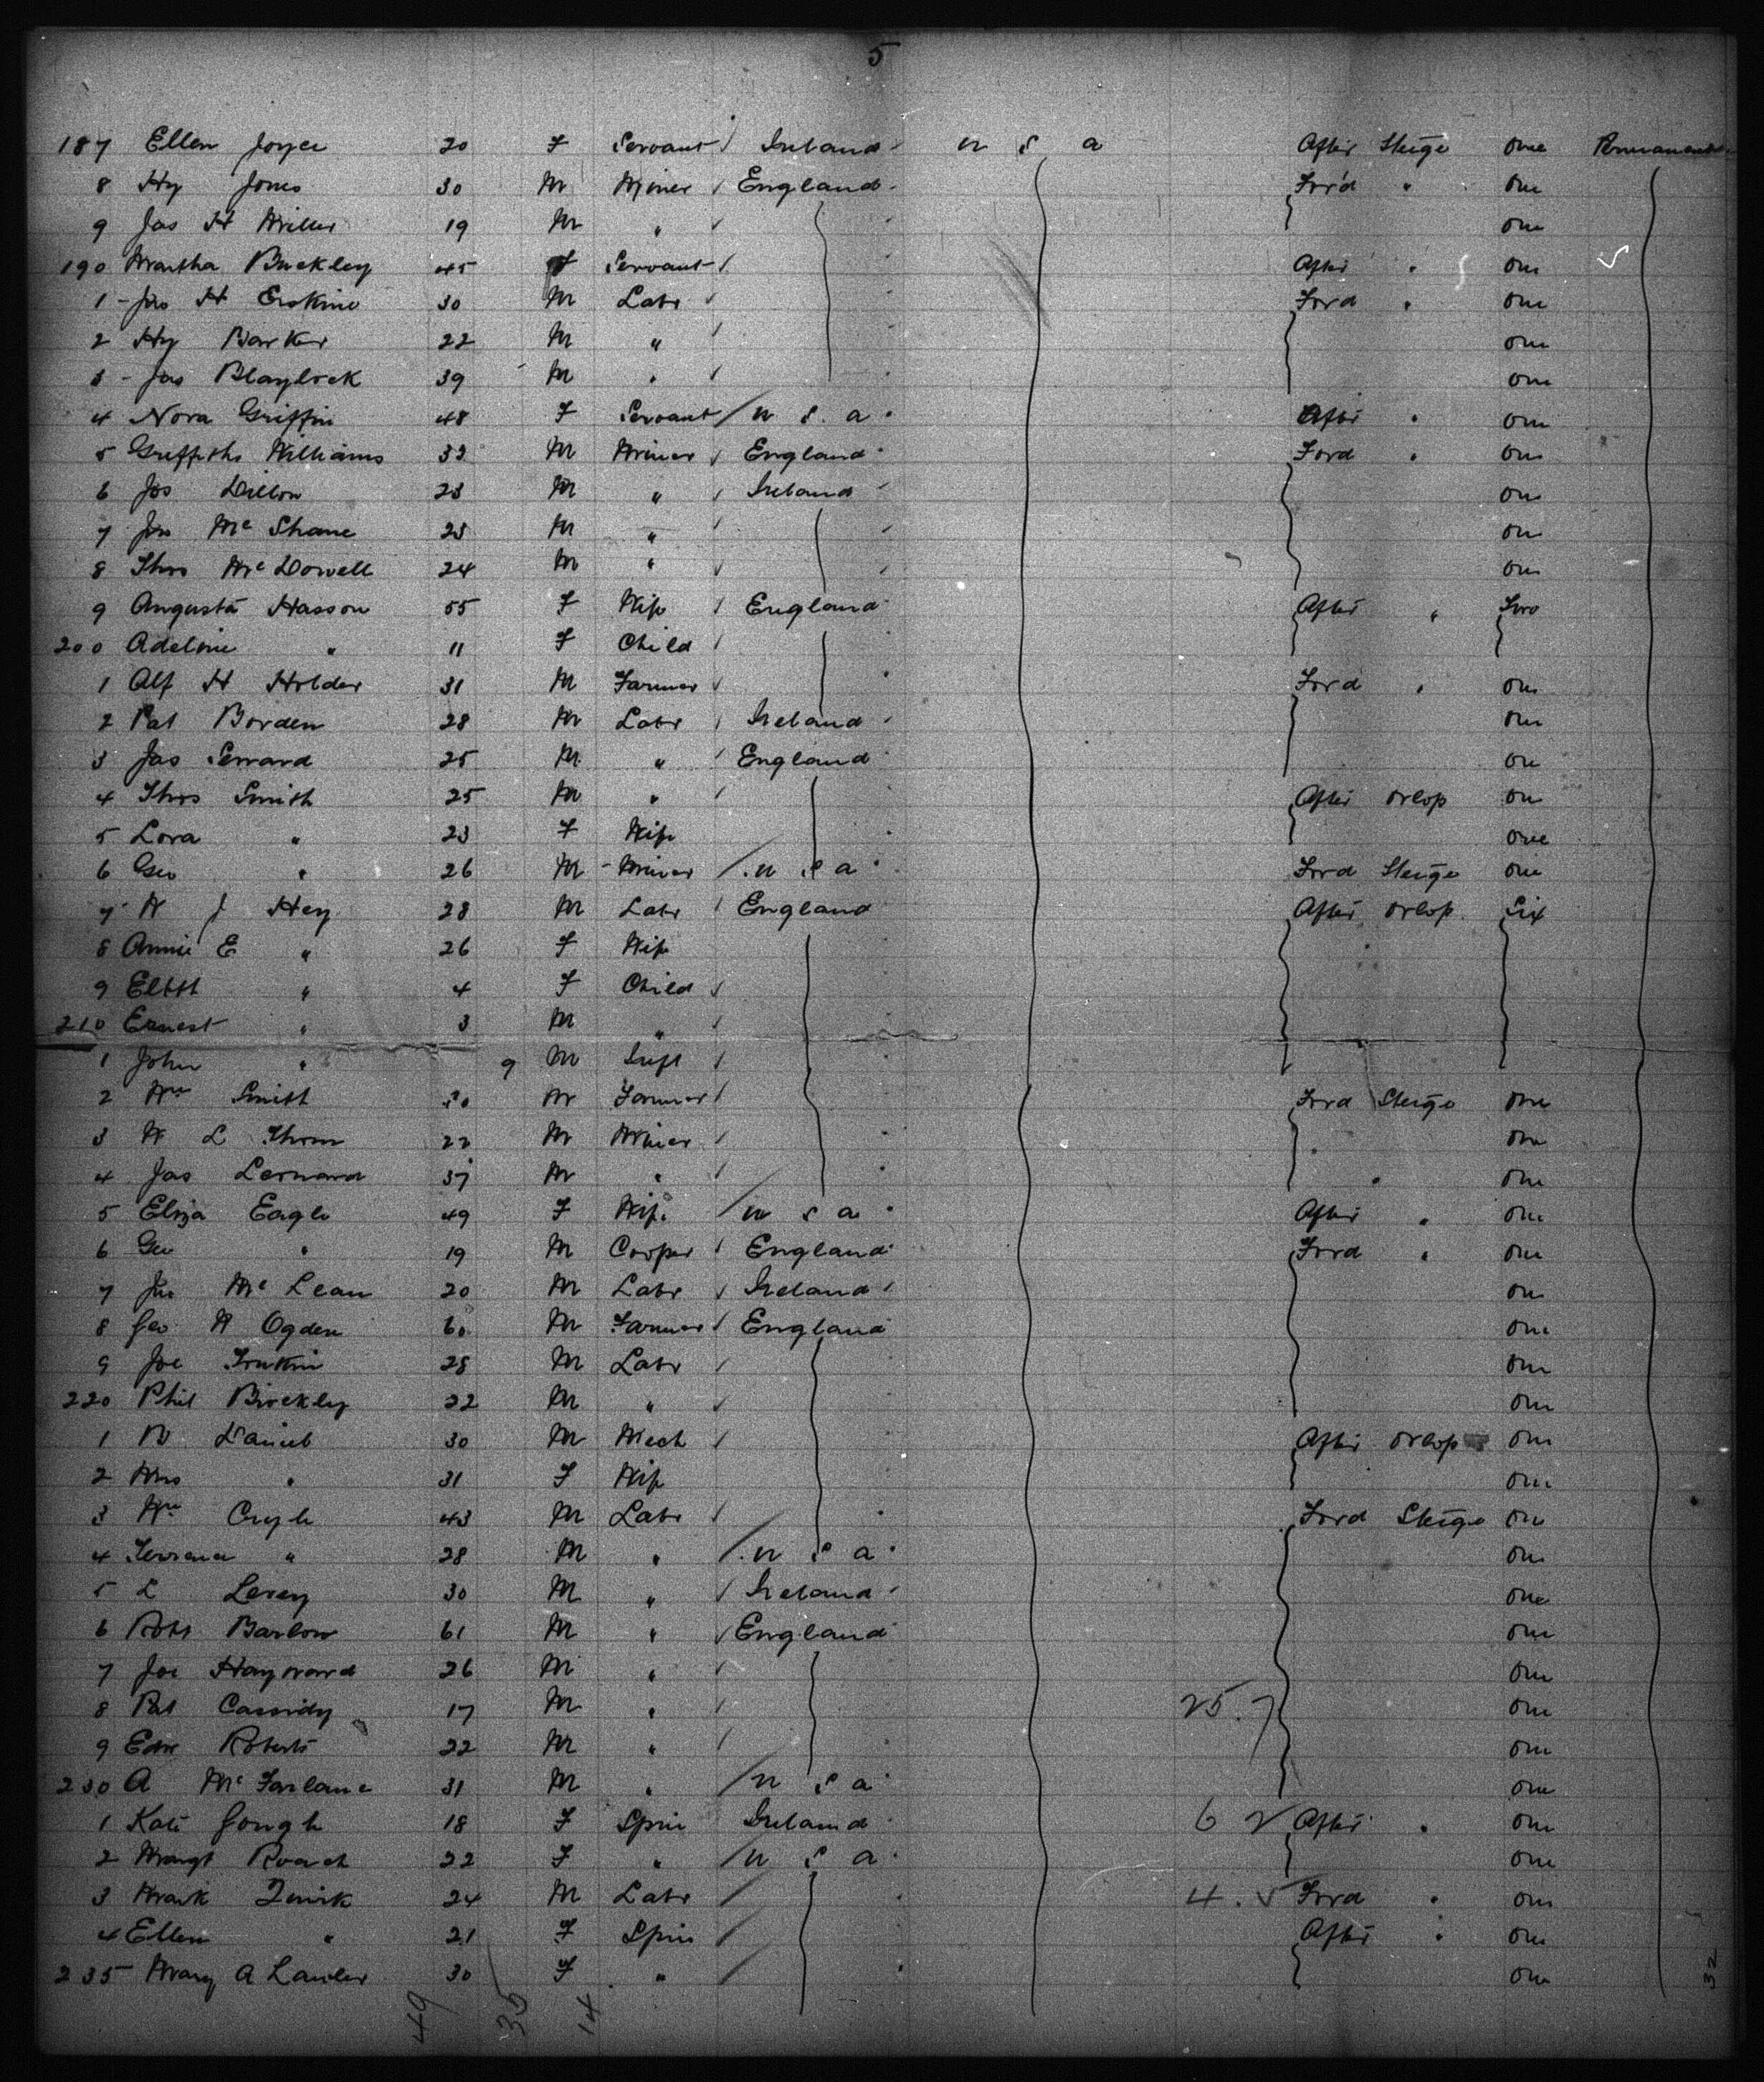 5
187 Ellen Joyce 20 F Servant / Ireland u s a After Steige one Permanent
8 Hy Jones 30 M Miner / England Ford " one
9 Jas H Miller 19 M " / one
190 Martha Buckley 45 F Servant / After " one
1 Jas H Erskine 30 M Labr / Ford " one
2 Hy Barker 22 M " / one
3 Jas Blaylock 39 M " / one
4 Nora Griffin 48 F Servant / u s a After " one
5 Griffiths Williams 32 M Miner / England Ford " one
6 Jos Dillon 23 M " / Ireland one
7 Jno Mc Shane 25 M " / one
8 Thos Mc Dowell 24 M " / one
9 Augusta Hasson 55 F Wife / England After " Two
200 Adeline " 11 F Child /
1 Alf H Holder 31 M Farmer / Ford " one
2 Pat Borden 28 M Labr / Ireland one
3 Jas Serrard 25 M " / England one
4 Thos Smith 25 M " / After orlop one
5 Lora " 23 F Wife one
6 Geo " 26 M Miner / u s a Ford Steige one
7 W J Hey 28 M Labr / England After orlop Six
8 Annie E " 26 F Wife
9 Elbth " 4 F Child /
210 Ernest " 3 M " /
1 John " 9 M Inft /
2 Wm Smith M Farmer / Ford Steige one
3 W L Thom 22 M Miner / one
4 Jas Lernard 37 M " / " one
5 Eliza Eagle 49 F Wife / u s a After " one
6 Geo " 19 M Cooper / England Ford " one
7 Jno Mc Lean 20 M Labr / Ireland one
8 Geo W Ogden 60 M Farmer / England one
9 Joe 28 M Labr / one
220 Phil Birckley 22 M " / one
1 W Daniel 30 M Mech / After orlop one
2 Mrs " 31 F Wife one
3 Wm 43 M Labr / Ford Steige one
4 " 28 M " / u s a one
5 L Levey 30 M " / Ireland one
6 Robt Barlow 61 M " / England one
7 Joe Hayward 26 M " / one
8 Pat Cassidy 17 M " 25.7 one
9 Edw Roberts 22 M " / one
230 A Mc Farlane 31 M " / u s a one
1 Kate Gough 18 F Spin Ireland 6 2 After " one
2 Margt Roach 22 F " / u s a one
3 Mark 24 M Labr / 4.5 Ford " one
4 Ellen " 21 F Spin / After " one
235 Mary A Lawler 30 F " / one
49 35 14
32